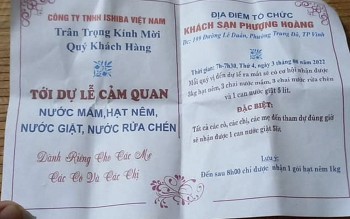 CÔNG TY TNHH ISHIBA VIỆT NAM
Trân Trọng Kính Mời
Quý Khách Hàng
TỚI DỰ LỄ CẢM QUAN
NƯỚC MẮM,HẠT NÊM,
NƯỚC GIẶT, NƯỚC RỬA CHÉN
Dành Riêng Cho Các Mẹ
Các Cô Và Các Chị
ĐỊA ĐIỂM TỔ CHỨC
KHÁCH SẠN PHƯỢNG HOÀNG
Đc: 199 Đường Lê Duẩn, Phường Trung Đô, TP Vinh
Thời gian: 7h-7h30, Thứ 4, ngày 3 tháng 08 năm 2022
Mời quý vị đến dự lễ ra mắt sẽ có cơ hội nhận được
5kg hạt nêm, 3 chai nước mắm, 3 chai nước rửa chén
và 1 can nước giặt 5 lít.
ĐẶC BIỆT:
Tất cả các cô, các chị, các mẹ đến tham dự đúng giờ
sẽ nhận được 1 can nước giặt 5lit.
LƯU Ý:
Đến sau 8h00 chỉ được nhận 1 gói hạt nêm 1kg